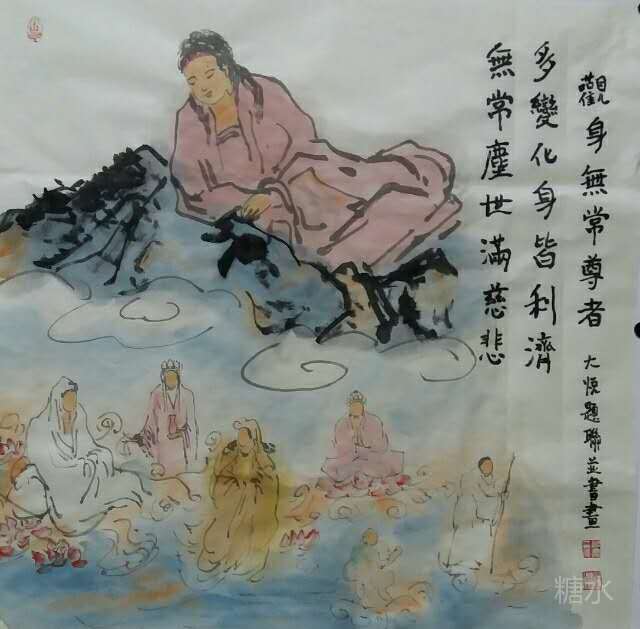 觀身無常尊者
多變化身皆利濟
無常塵世滿慈悲
大悞題聯並書畫
糖水